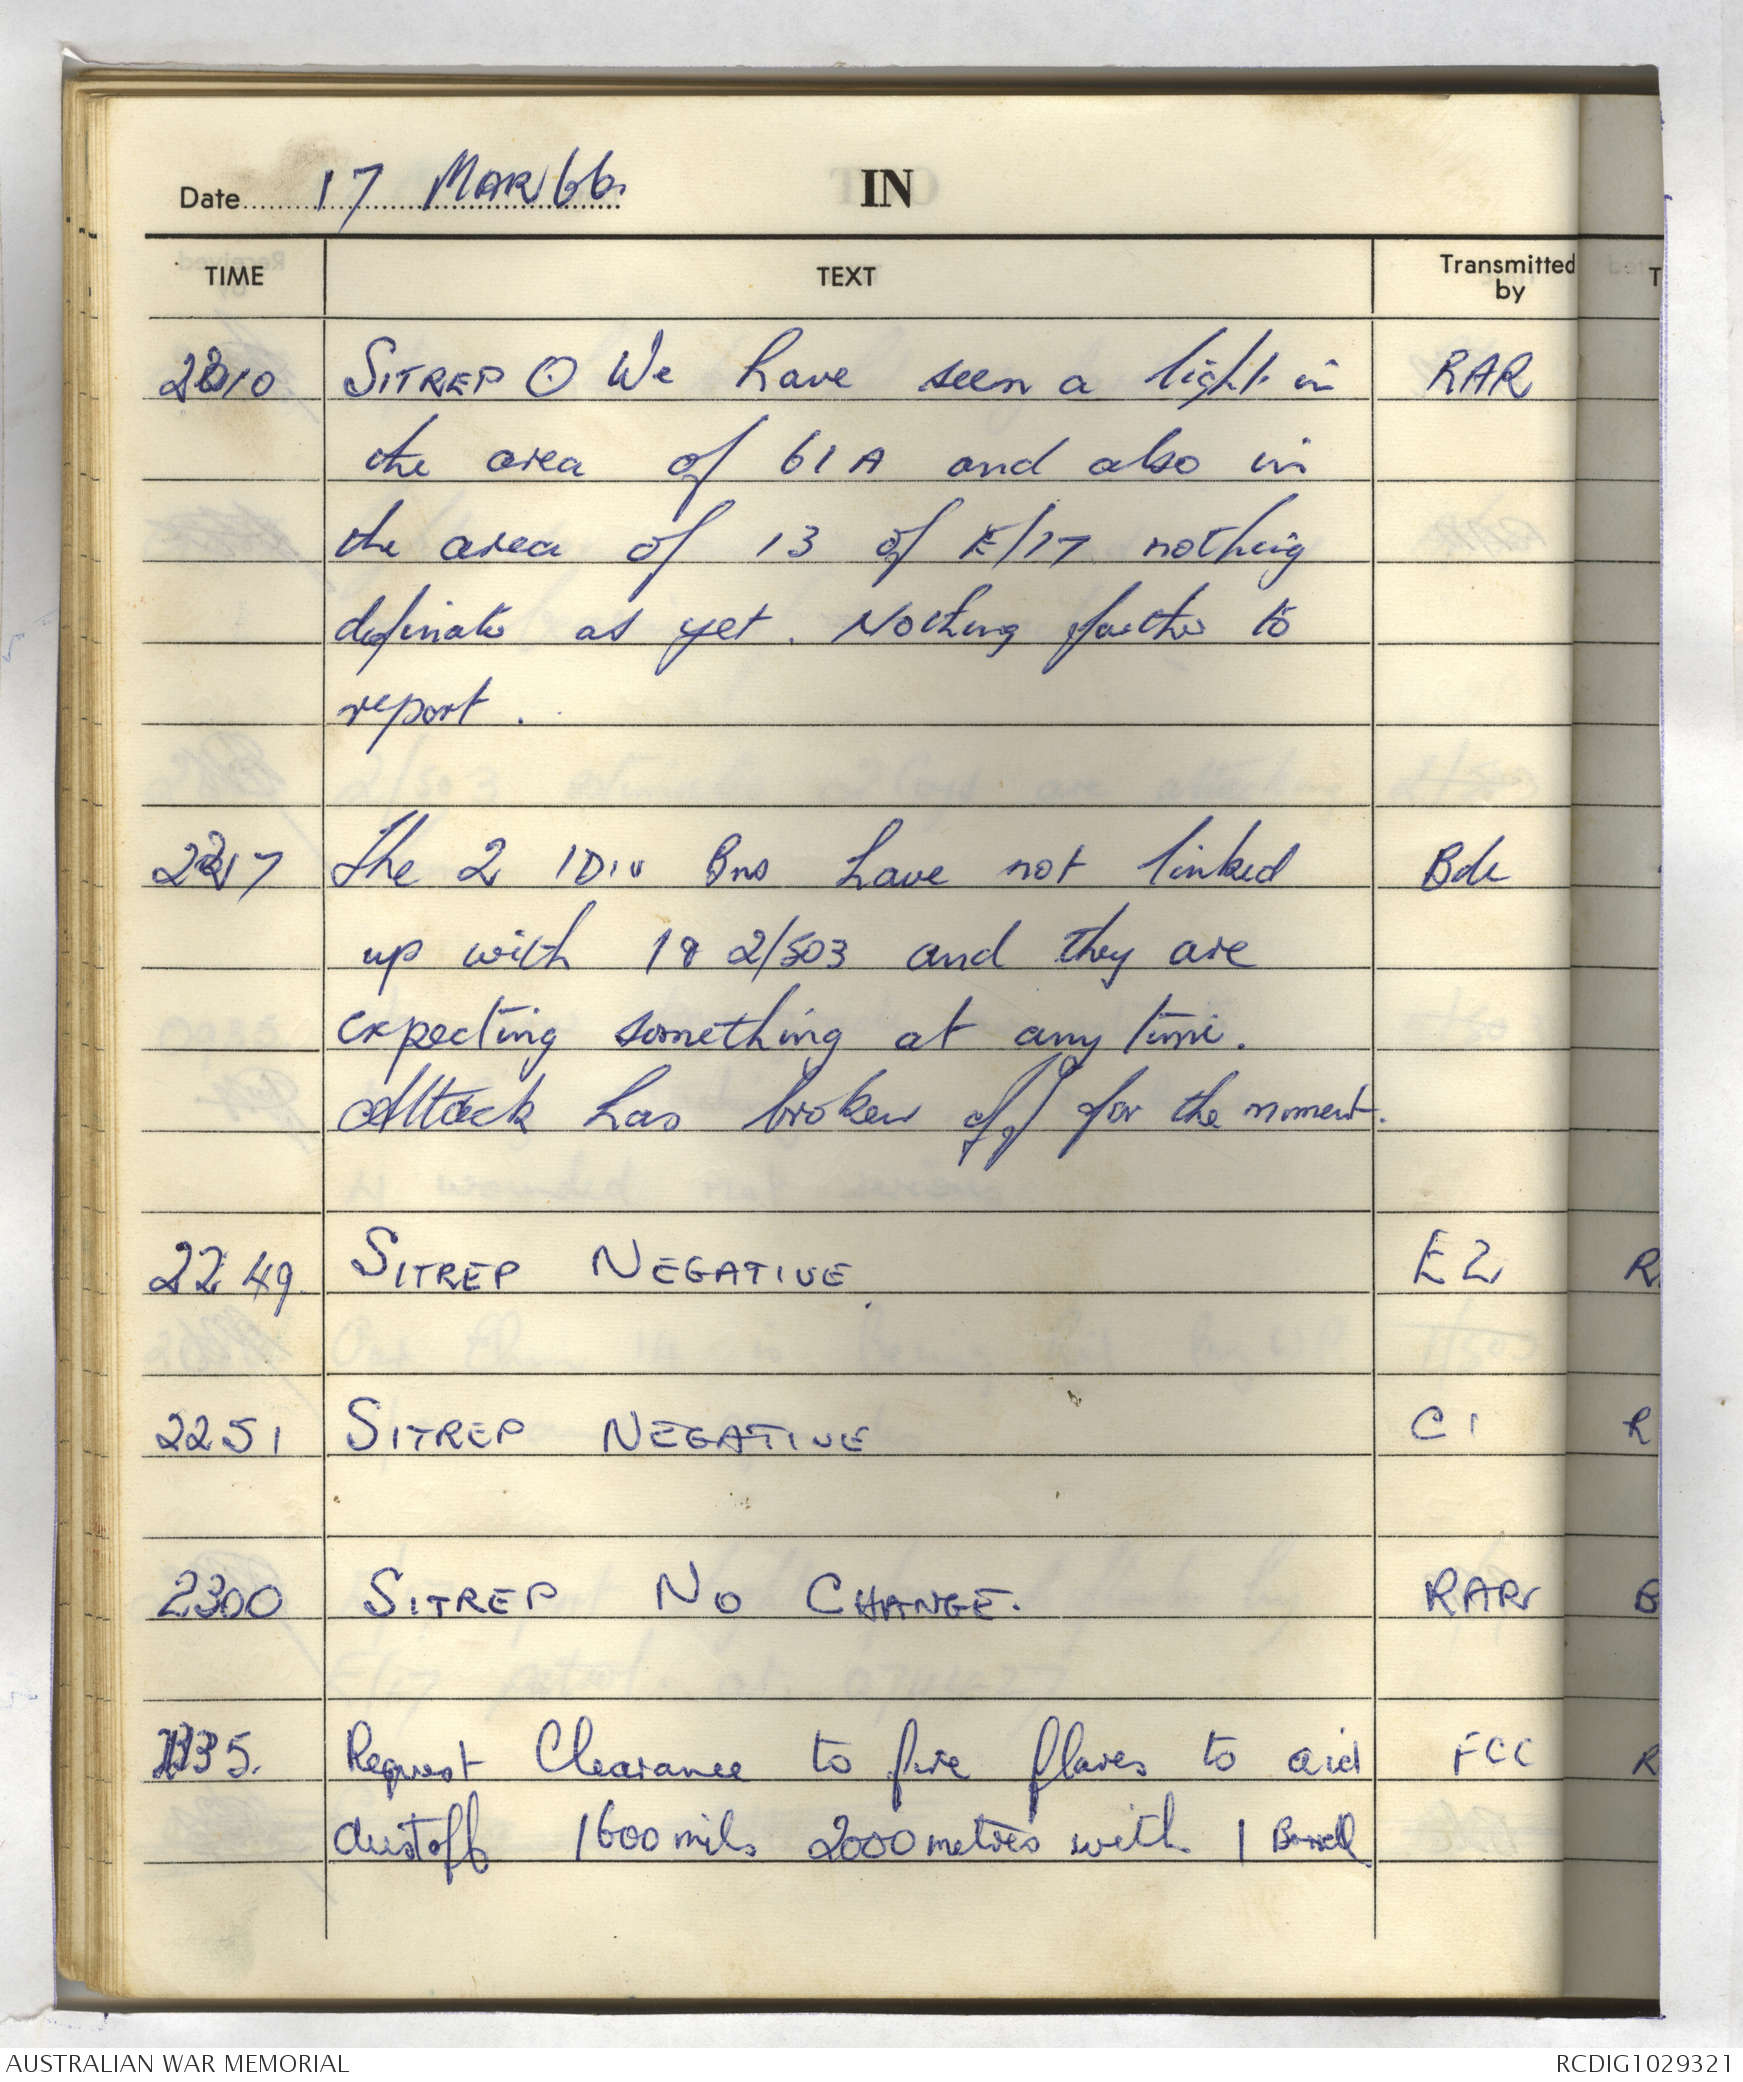 Date 17 MAR 66.
IN
TIME TEXT Transmitted by
2210 SITREP ⊙ We have seen a light in RAR
the area of 61A and also in
the area of 13 of E/17 nothing
definate as yet. Nothing further to
report.
2217 The 2 1 Div Bns have not linked Bde
up with 18 2/503 and they are
expecting something at any time.
Attack has broken off for the moment.
2249 SITREP NEGATIVE E2 R
2251 SITREP NEGATIVE C1 R
2300 SITREP NO CHANGE. RAR B
2335. Request Clearance to fire flares to aid FCC R
dustoff 1600 mils 2000 metres with 1 Barrell
AUSTRALIAN WAR MEMORIAL
RCDIG1029321